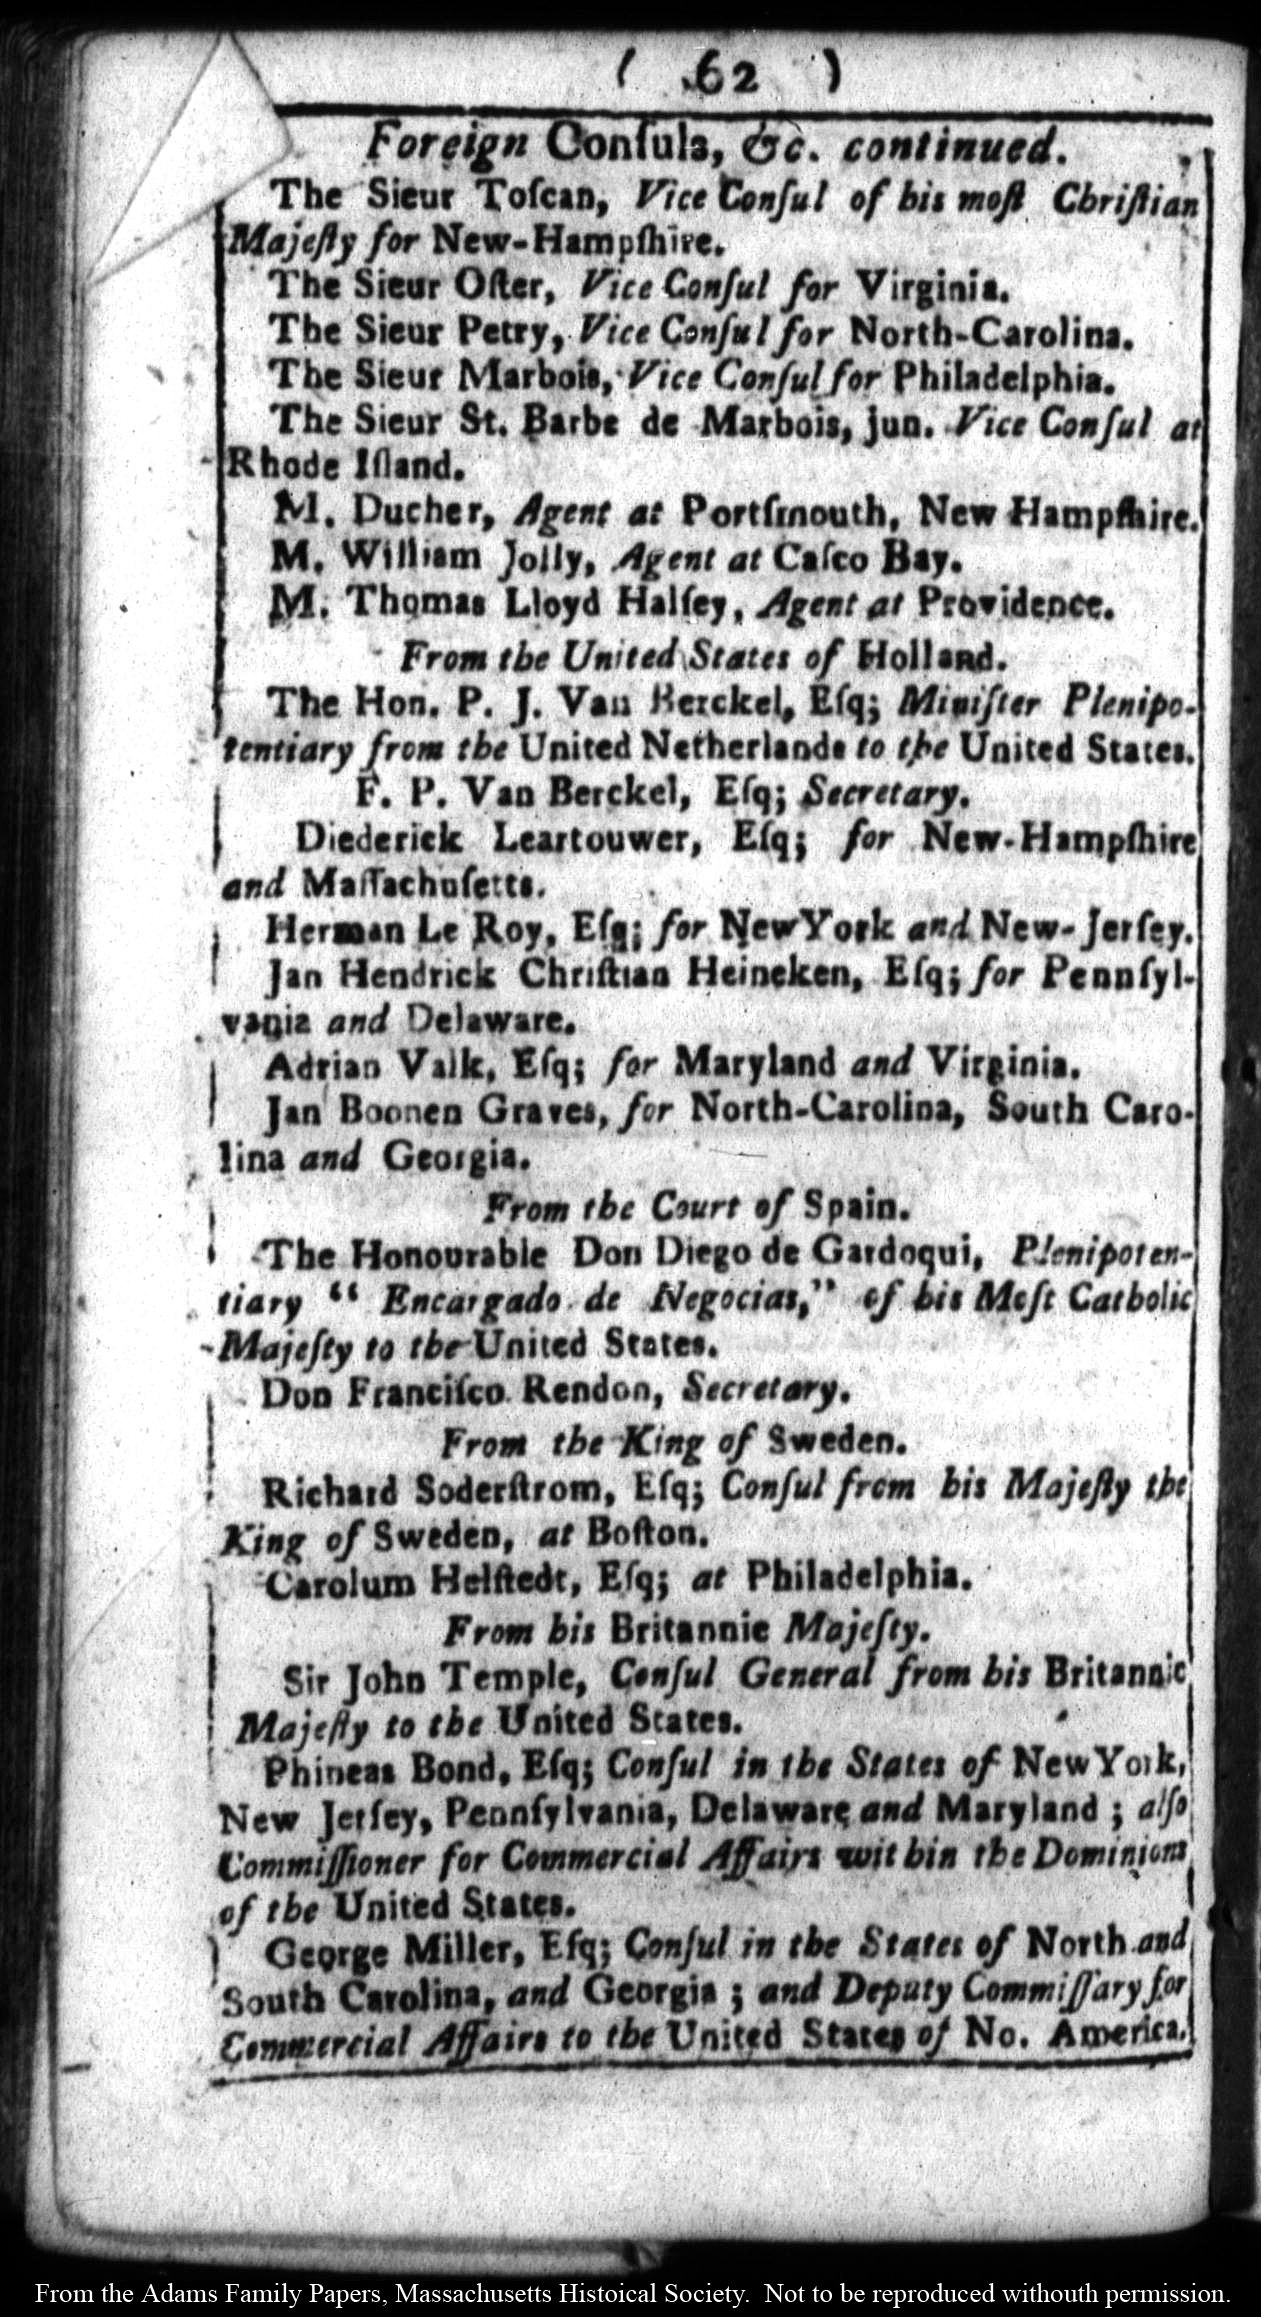 ( 62 )
Foreign Conſuls, &c. continued.
The Sieur Toſcan, Vice Conſul of his moſt Chriſtian
Majeſty for New-Hampſhire.
The Sieur Oſter, Vice Conſul for Virginia.
The Sieur Petry, Vice Conſul for North-Carolina.
The Sieur Marbois, Vice Conſul for Philadelphia.
The Sieur St. Barbe de Marbois, jun. Vice Conſul at
Rhode Iſland.
M. Ducher, Agent at Portſmouth, New Hampſhire.
M. William Jolly, Agent at Caſco Bay.
M. Thomas Lloyd Halſey, Agent at Providence.
From the United States of Holland.
The Hon. P. J. Van Berckel, Eſq; Miniſter Plenipo-
tentiary from the United Netherlands to the United States.
F. P. Van Berckel, Eſq; Secretary.
Diederick Leartouwer, Eſq; for New-Hampſhire
and Maſſachuſetts.
Herman Le Roy, Eſq; for New York and New-Jerſey.
Jan Hendrick Chriſtian Heineken, Eſq; for Pennſyl-
vania and Delaware.
Adrian Valk, Eſq; for Maryland and Virginia.
Jan Boonen Graves, for North-Carolina, South Caro-
lina and Georgia.
From the Court of Spain.
The Honourable Don Diego de Gardoqui, Plenipoten-
tiary “ Encargado de Negocias,” of his Moſt Catholic
Majeſty to the United States.
Don Franciſco Rendon, Secretary.
From the King of Sweden.
Richard Soderſtrom, Eſq; Conſul from his Majeſty the
King of Sweden, at Boſton.
Carolum Helſtedt, Eſq; at Philadelphia.
From his Britannic Majeſty.
Sir John Temple, Conſul General from his Britannic
Majeſty to the United States.
Phineas Bond, Eſq; Conſul in the States of New York,
New Jerſey, Pennſylvania, Delaware and Maryland ; alſo
Commiſſioner for Commercial Affairs within the Dominions
of the United States.
George Miller, Eſq; Conſul in the States of North and
South Carolina, and Georgia ; and Deputy Commiſſary for
Commercial Affairs to the United States of No. America.
From the Adams Family Papers, Massachusetts Histoical Society. Not to be reproduced withouth permission.